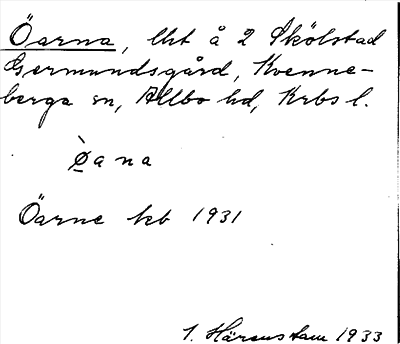 Öarna, lht å 2 Skölstad
Germundsgård, Kvenne-
berga sn, Allbo hd, Krbs l.
Ø̀ana
Öarne kb 1931
1. Härenstam 1933